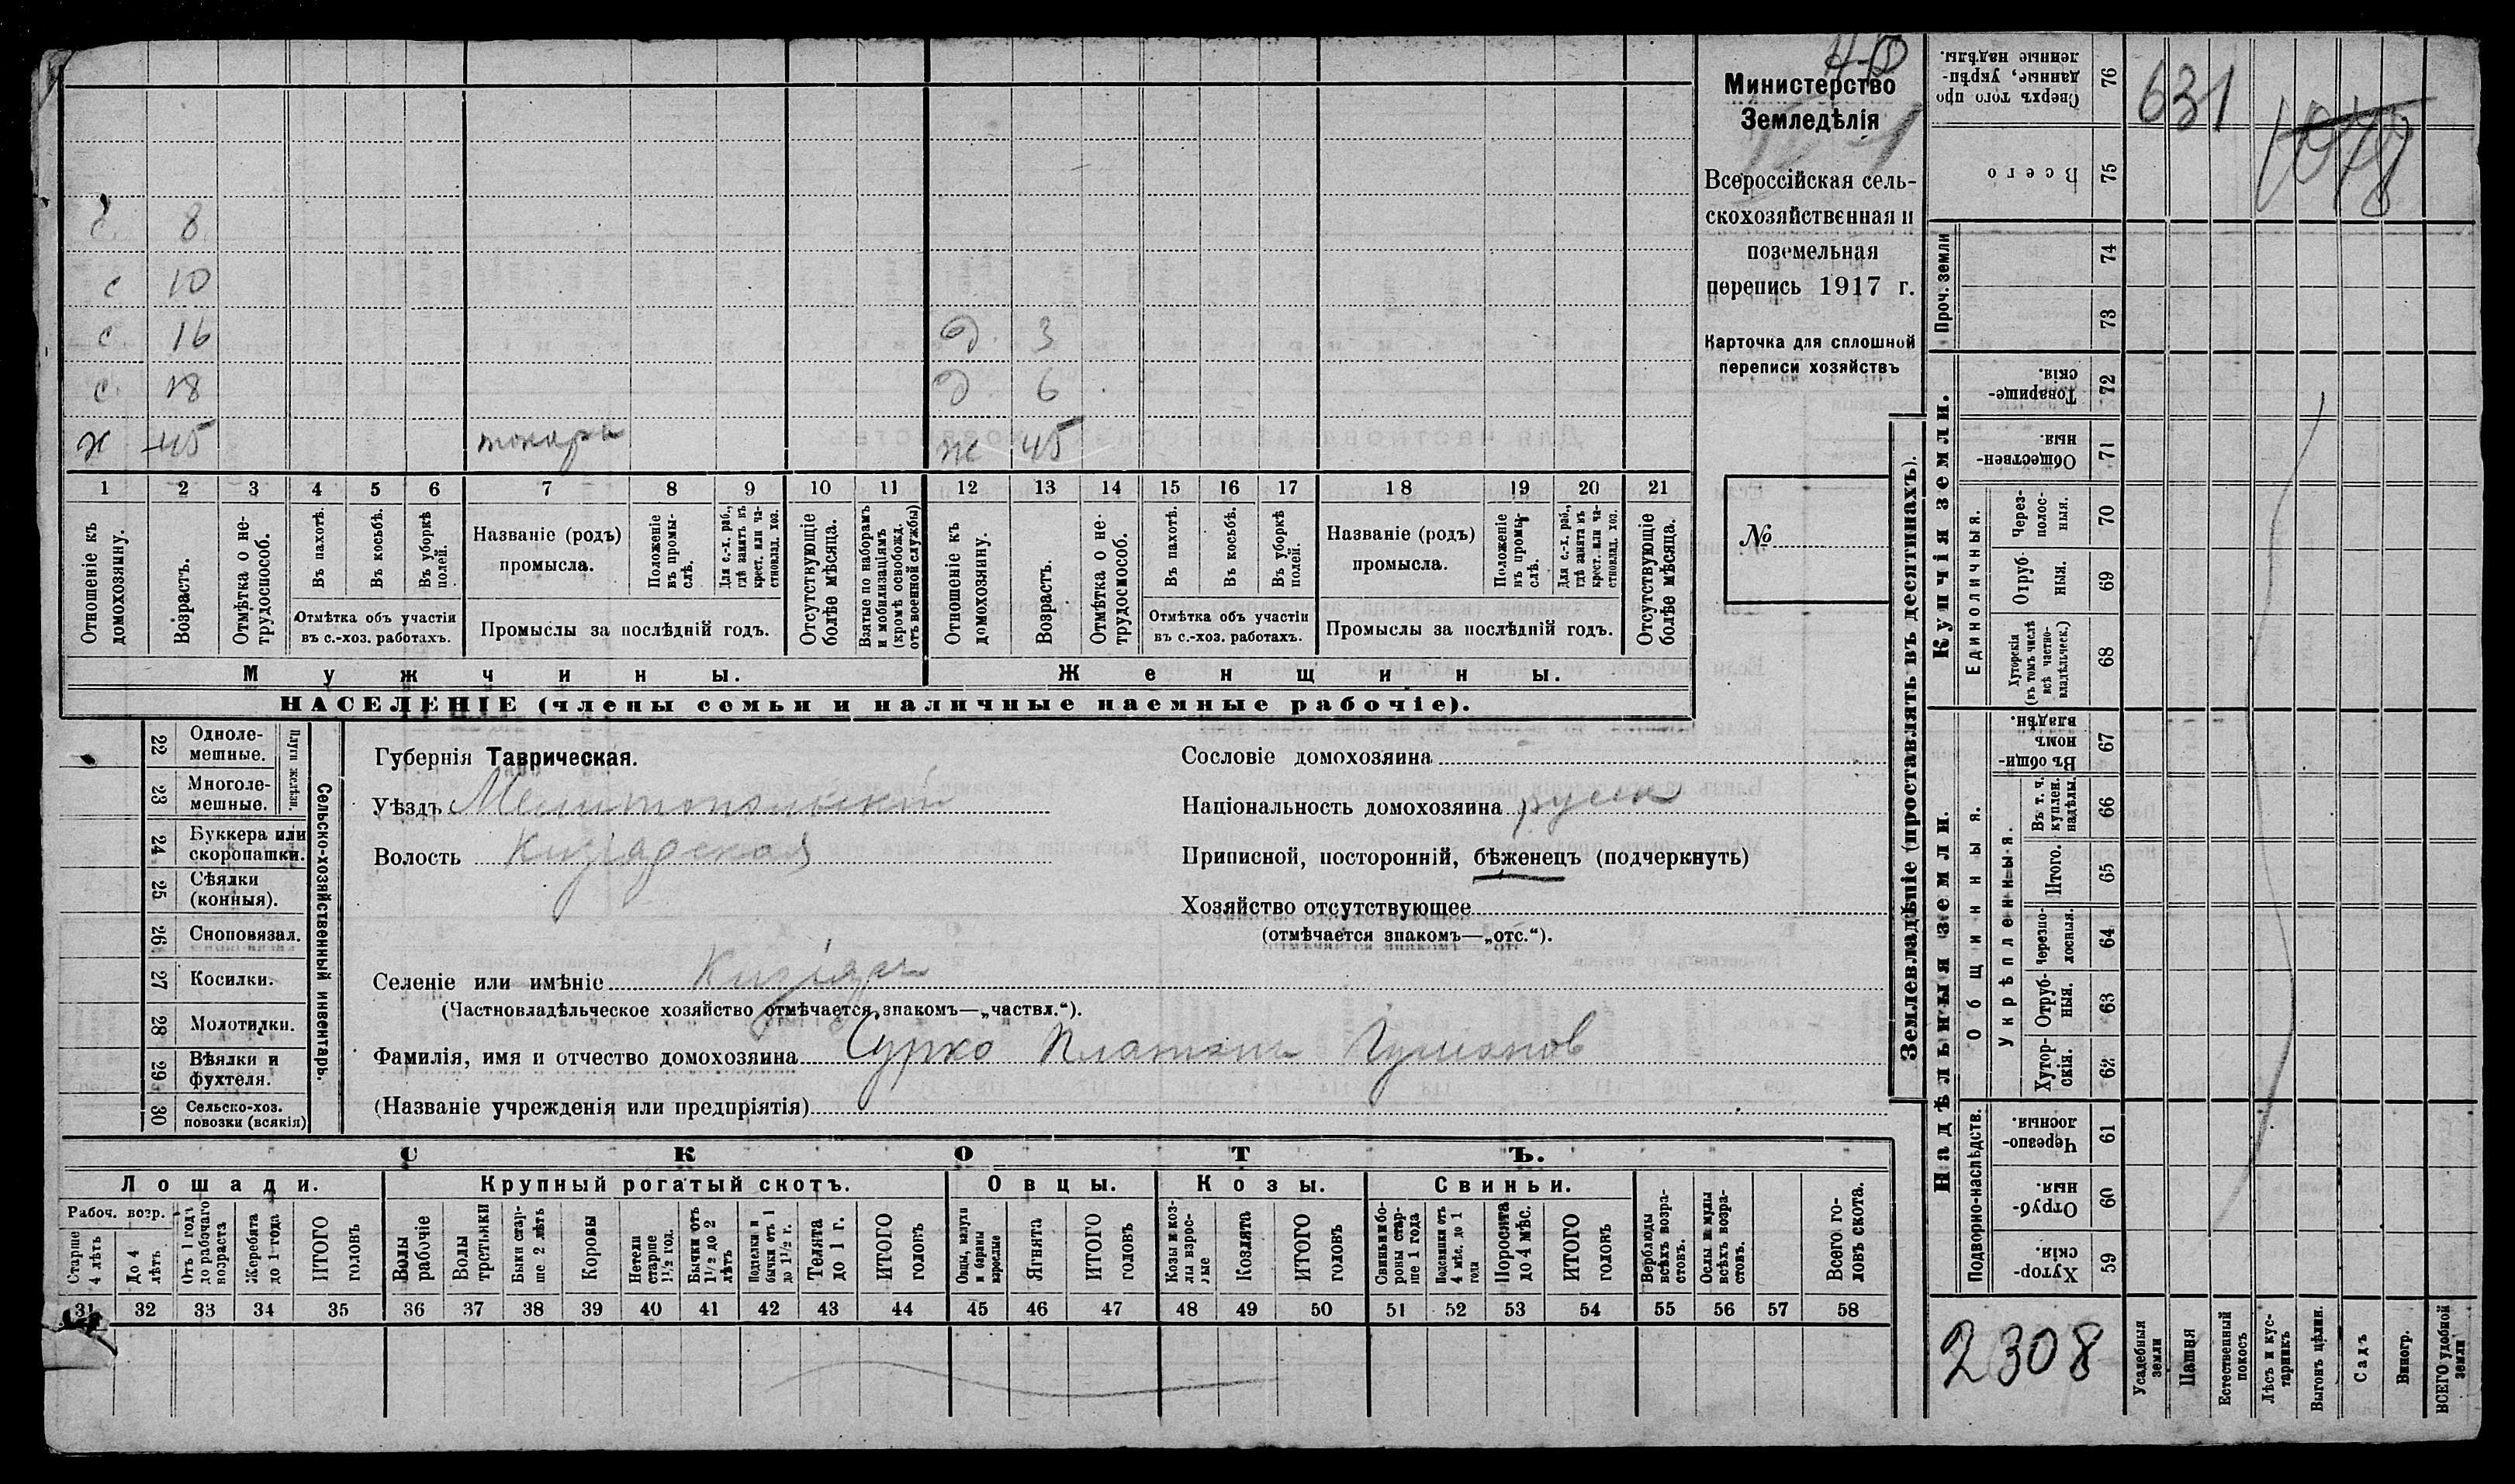 Министерство
Земледѣлія
Всероссійская сель-
скохозяйственная и
поземельная
перепись 1917 г.
Карточка для сплошной
переписи хозяйствъ
№
с. 8
с 10
с. 16 д. 3
с. 18 д 6
х 45 токарь ж 45
1 2 3 4 5 6 7 8 9 10 11 12 13 14 15 16 17 18 19 20 21
Отношеніе къ домохозяину.
Возрастъ.
Отмѣтка о не-трудоспособ.
Въ пахотѣ.
Въ косьбѣ.
Въ уборкѣ полей.
Отмѣтка объ участіи
въ с.-хоз. работахъ.
Названіе (родъ)
промысла.
Положеніе въ промы-слѣ.
Для с.-х. раб., гдѣ занятъ въ крест. или ча-стновлад. хоз.
Промыслы за послѣдній годъ.
Отсутствующіе болѣе мѣсяца.
Взятые по наборамъ и мобилизаціямъ (кромѣ освобожд. отъ военной службы)
Отношеніе къ домохозяину.
Возрастъ.
Отмѣтка о не-трудоспособ.
Въ пахотѣ.
Въ косьбѣ.
Въ уборкѣ полей.
Отмѣтка объ участіи
въ с.-хоз. работахъ.
Названіе (родъ)
промысла.
Положеніе въ промы-слѣ.
Для с.-х. раб., гдѣ занята въ крест. или ча-стновлад. хоз.
Промыслы за послѣдній годъ.
Отсутствующіе болѣе мѣсяца.
Мужчины.
Женщины.
НАСЕЛЕНІЕ (члены семьи и наличные наемные рабочіе).
22 Одноле-мешные.
23 Многоле-мешные.
Плуги желѣзн.
24 Буккера или скоропашки.
25 Сѣялки (конныя).
26 Сноповязал.
27 Косилки.
28 Молотилки.
29 Вѣялки и фухтеля.
30 Сельско-хоз. повозки (всякія)
Сельско-хозяйственный инвентарь.
Губернія Таврическая.
Уѣздъ Мелитопольскій
Волость Кизіярская
Селеніе или имѣніе Кизіяръ
(Частновладѣльческое хозяйство отмѣчается знакомъ—„частвл.“).
Фамилія, имя и отчество домохозяина Сурко Платонъ
(Названіе учрежденія или предпріятія)
Сословіе домохозяина
Національность домохозяина русск
Приписной, посторонній, бѣженецъ (подчеркнуть)
Хозяйство отсутствующее
(отмѣчается знакомъ—„отс.“).
СКОТЪ.
Лошади.
Крупный рогатый скотъ.
Овцы.
Козы.
Свиньи.
Рабоч. возр.
Старше 4 лѣтъ
До 4 лѣтъ.
Отъ 1 года до рабочаго возраста
Жеребята до 1 года
ИТОГО головъ
Волы рабочіе
Волы третьяки
Быки стар-ше 2 лѣтъ
Коровы
Нетели старше 1½ год.
Бычки отъ 1½ до 2 лѣтъ
Подтелки и бычки отъ 1 до 1½ г.
Телята до 1 г.
ИТОГО головъ
Овцы, валухи и бараны взрослые
Ягнята
ИТОГО головъ
Козы и коз-лы взрос-лые
Козлята
ИТОГО головъ
Свиньи и бо-ровы стар-ше 1 года
Подсвинки отъ 4 мѣс. до 1 года
Поросята до 4 мѣс.
ИТОГО головъ
Верблюды всѣхъ возра-стовъ.
Ослы и мулы всѣхъ возра-стовъ.
Всего го-ловъ скота.
31 32 33 34 35 36 37 38 39 40 41 42 43 44 45 46 47 48 49 50 51 52 53 54 55 56 57 58
Землевладѣніе (проставлять въ десятинахъ).
Надѣльныя земли.
Купчія земли.
Проч. земли
Подворно-наслѣдств.
Общинныя.
Укрѣпленныя.
Единоличныя.
Сверхъ того про данные, укрѣп-ленные надѣлы. 76
Всего 75
74
73
Товарище-скія. 72
Обществен-ныя. 71
Через-полос-ныя. 70
Отруб ныя. 69
Хуторскія (въ томъ числѣ всѣ частно-владѣльческ.) 68
Въ общи-номъ владѣн. 67
Въ т. ч. куплен. надѣлы. 66
Итого. 65
Черезпо-лосныя. 64
Отруб-ныя. 63
Хутор-скія. 62
Черезпо-лосныя. 61
Отруб-ныя. 60
Хутор-скія. 59
631
1078
2308
Усадебныя земли
Пашня
Естественный покосъ
Лѣсъ и кус-тарникъ
Выгонъ цѣлин.
Садъ
Виногр.
ВСЕГО удобной земли